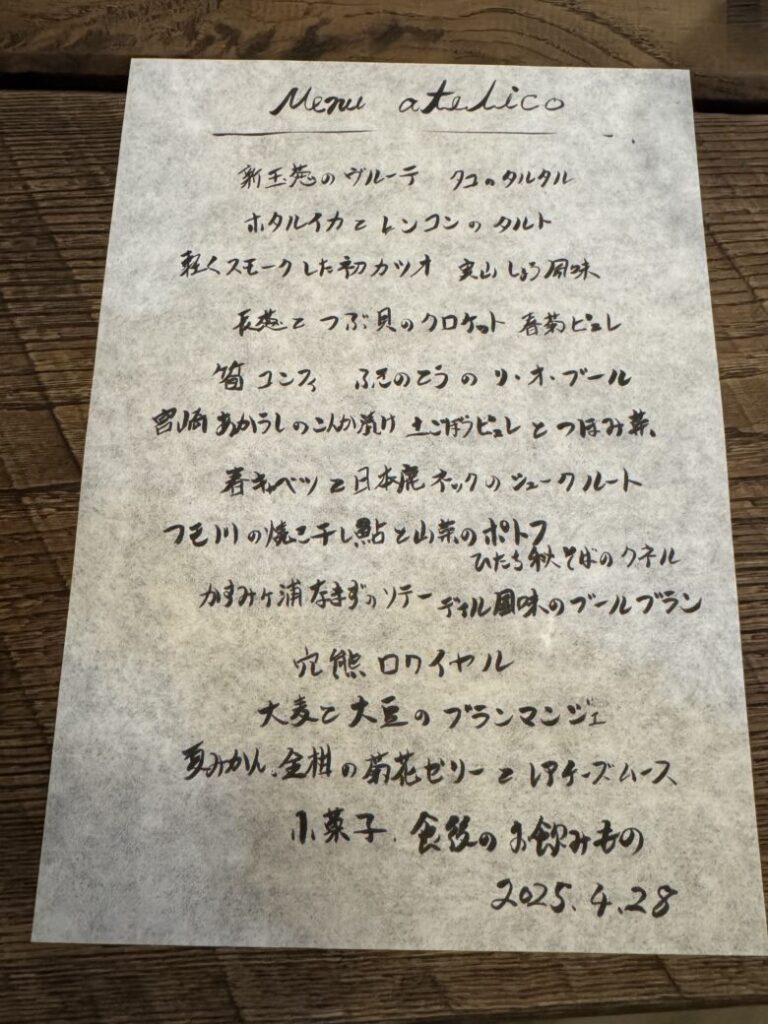 Menu atelico
新玉葱のヴルーテ タコのタルタル
ホタルイカとレンコンのタルト
軽くスモークした初カツオ 実山しょう風味
長葱とつぶ貝のクロケット 春菊ピュレ
筍コンフィ ふきのとうのリ・オ・ブール
宮崎あかうしのこんか漬け 土ごぼうピュレとつぼみ菜、
春キャベツと日本鹿ネックのシュークルート
フモ川の焼き干し鮎と山菜のポトフ
ひたち秋そばのクネル
かすみヶ浦なまずのソテー ディル風味のブールブラン
穴熊ロワイヤル
大麦と大豆のブランマンジェ
夏みかん、金柑の菊花ゼリーとレアチーズムース
小菓子、食後のお飲みもの
2025.4.28